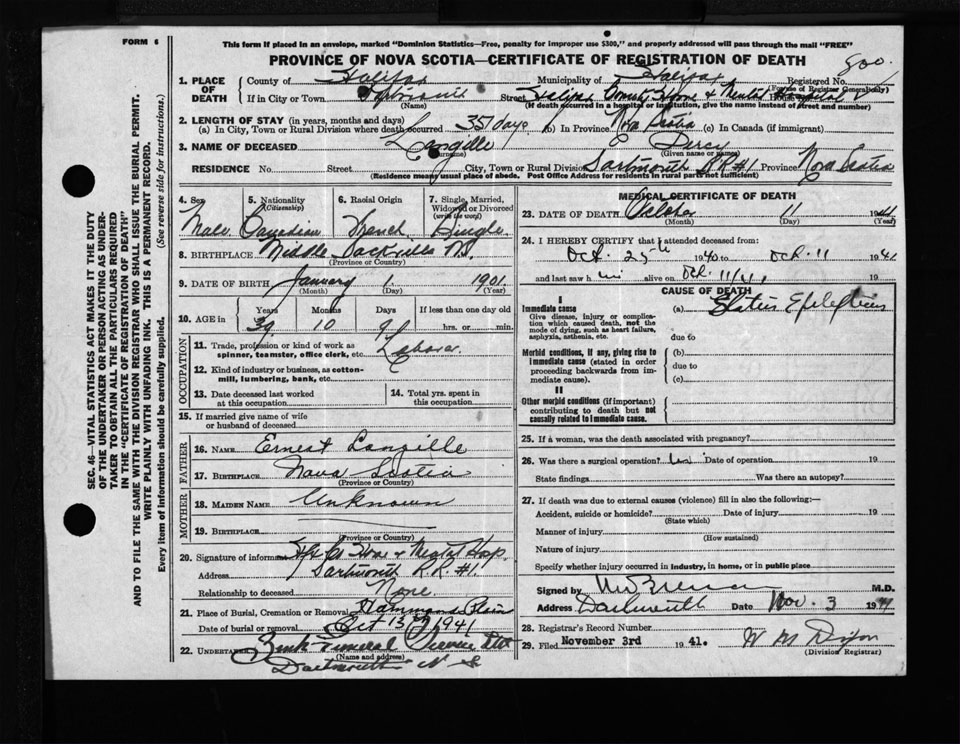 FORM 6
This form if placed in an envelope, marked "Dominion Statistics—Free, penalty for improper use $300," and properly addressed will pass through the mail "FREE"
PROVINCE OF NOVA SCOTIA—CERTIFICATE OF REGISTRATION OF DEATH
800
1. PLACE OF DEATH
County of Halifax Municipality of Halifax Registered No.
(For use of Registrar General only)
If in City or Town Dartmouth Street Halifax County Home & Mental Hospital
(Name) (If death occurred in a hospital or institution, give the name instead of street and number)
2. LENGTH OF STAY (in years, months and days)
(a) In City, Town or Rural Division where death occurred 351 days (b) In Province Nova Scotia (c) In Canada (if immigrant)
3. NAME OF DECEASED Langille Percy
(Surname) (Given name or names)
RESIDENCE No. Street City, Town or Rural Division Dartmouth RR #1 Province Nova Scotia
(Residence means usual place of abode. Post Office Address for residents in rural parts not sufficient)
4. Sex Male
5. Nationality (Citizenship) Canadian
6. Racial Origin French
7. Single, Married, Widowed or Divorced (write the word) Single
8. BIRTHPLACE Middle Sackville N.S.
(Province or Country)
9. DATE OF BIRTH January 1 1901
(Month) (Day) (Year)
10. AGE in Years Months Days If less than one day old
39 10 9 hrs. or min.
OCCUPATION
11. Trade, profession or kind of work as spinner, teamster, office clerk, etc. Laborer
12. Kind of industry or business, as cotton-mill, lumbering, bank, etc.
13. Date deceased last worked at this occupation
14. Total yrs. spent in this occupation
15. If married give name of wife or husband of deceased
FATHER
16. NAME Ernest Langille
17. BIRTHPLACE Nova Scotia
(Province or Country)
MOTHER
18. MAIDEN NAME Unknown
19. BIRTHPLACE
(Province or Country)
20. Signature of informant Hfx Co Home & Mental Hosp.
Address Dartmouth R.R. #1.
Relationship to deceased None
21. Place of Burial, Cremation or Removal Hammonds Plain
Date of burial or removal Oct 13 1941
22. UNDERTAKER Funeral Service
(Name and address)
Dartmouth N S
MEDICAL CERTIFICATE OF DEATH
23. DATE OF DEATH October 11 1941
(Month) (Day) (Year)
24. I HEREBY CERTIFY that I attended deceased from:
Oct. 25th 1940 to Oct. 11 1941
and last saw him alive on Oct. 11/41
CAUSE OF DEATH
I
Immediate cause (a) Status Epilepticus
Give disease, injury or complication which caused death, not the mode of dying, such as heart failure, asphyxia, asthenia, etc.
due to
Morbid conditions, if any, giving rise to immediate cause (stated in order proceeding backwards from immediate cause).
(b)
due to
(c)
II
Other morbid conditions (if important) contributing to death but not causally related to immediate cause.
25. If a woman, was the death associated with pregnancy?
26. Was there a surgical operation? Date of operation 19
State findings Was there an autopsy?
27. If death was due to external causes (violence) fill in also the following:—
Accident, suicide or homicide? Date of injury 19
(State which)
Manner of injury
(How sustained)
Nature of injury
Specify whether injury occurred in industry, in home, or in public place
Signed by M.D.
Address Dartmouth Date Nov. 3 1941
28. Registrar's Record Number
29. Filed November 3rd 1941. W M Dixon
(Division Registrar)
SEC. 46—VITAL STATISTICS ACT MAKES IT THE DUTY
OF THE UNDERTAKER OR PERSON ACTING AS UNDER-
TAKER TO OBTAIN ALL THE PARTICULARS REQUIRED
IN THE "CERTIFICATE OF REGISTRATION OF DEATH"
AND TO FILE THE SAME WITH THE DIVISION REGISTRAR WHO SHALL ISSUE THE BURIAL PERMIT.
WRITE PLAINLY WITH UNFADING INK. THIS IS A PERMANENT RECORD.
Every item of information should be carefully supplied. (See reverse side for instructions.)